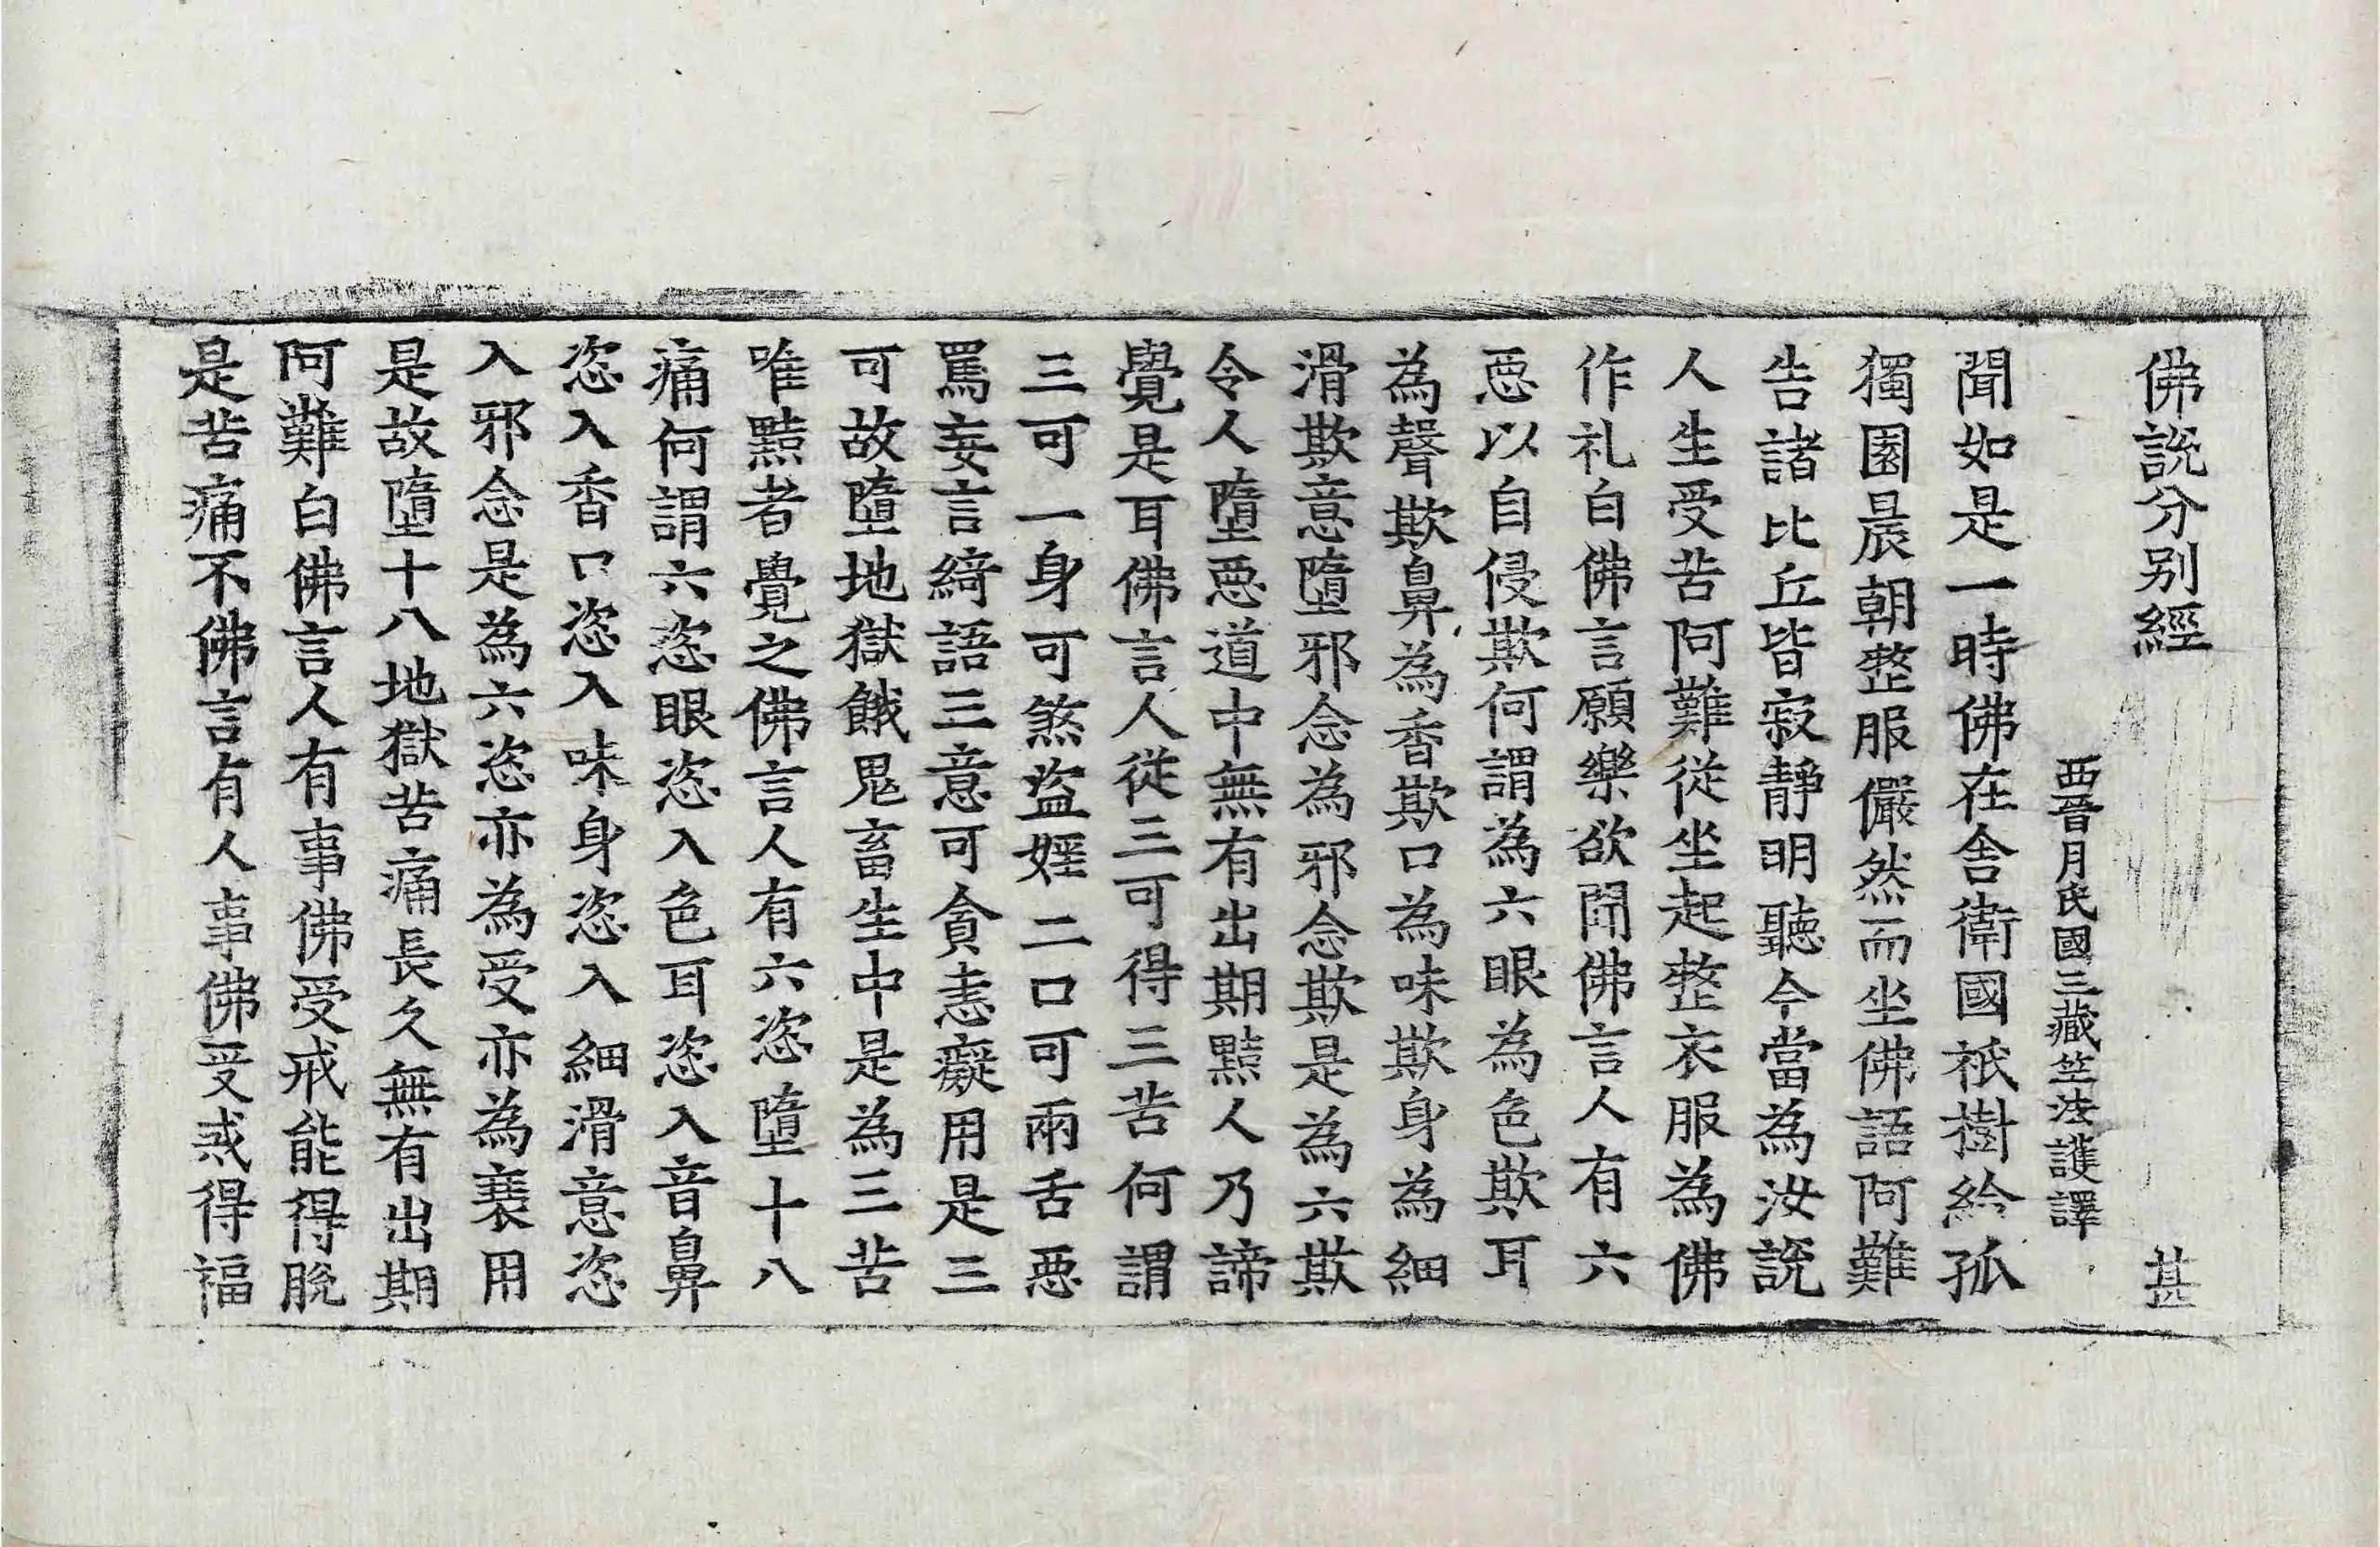 佛說分別經 甚
西晉月氏國三藏竺法護譯
聞如是一時佛在舍衛國祇樹給孤
獨園晨朝整服儼然而坐佛語阿難
告諸比丘皆寂靜明聽今當為汝說
人生受苦阿難從坐起整衣服為佛
作礼白佛言願樂欲聞佛言人有六
惡以自侵欺何謂為六眼為色欺耳
為聲欺鼻為香欺口為味欺身為細
滑欺意墮邪念為邪念欺是為六欺
令人墮惡道中無有出期黠人乃諦
覺是耳佛言人從三可得三苦何謂
三可一身可煞盜婬二口可兩舌惡
罵妄言綺語三意可貪恚癡用是三
可故墮地獄餓鬼畜生中是為三苦
唯黠者覺之佛言人有六恣墮十八
痛何謂六恣眼恣入色耳恣入音鼻
恣入香口恣入味身恣入細滑意恣
入邪念是為六恣亦為受亦為裹用
是故墮十八地獄苦痛長久無有出期
阿難白佛言人有事佛受戒能得脫
是苦痛不佛言有人事佛受戒得福